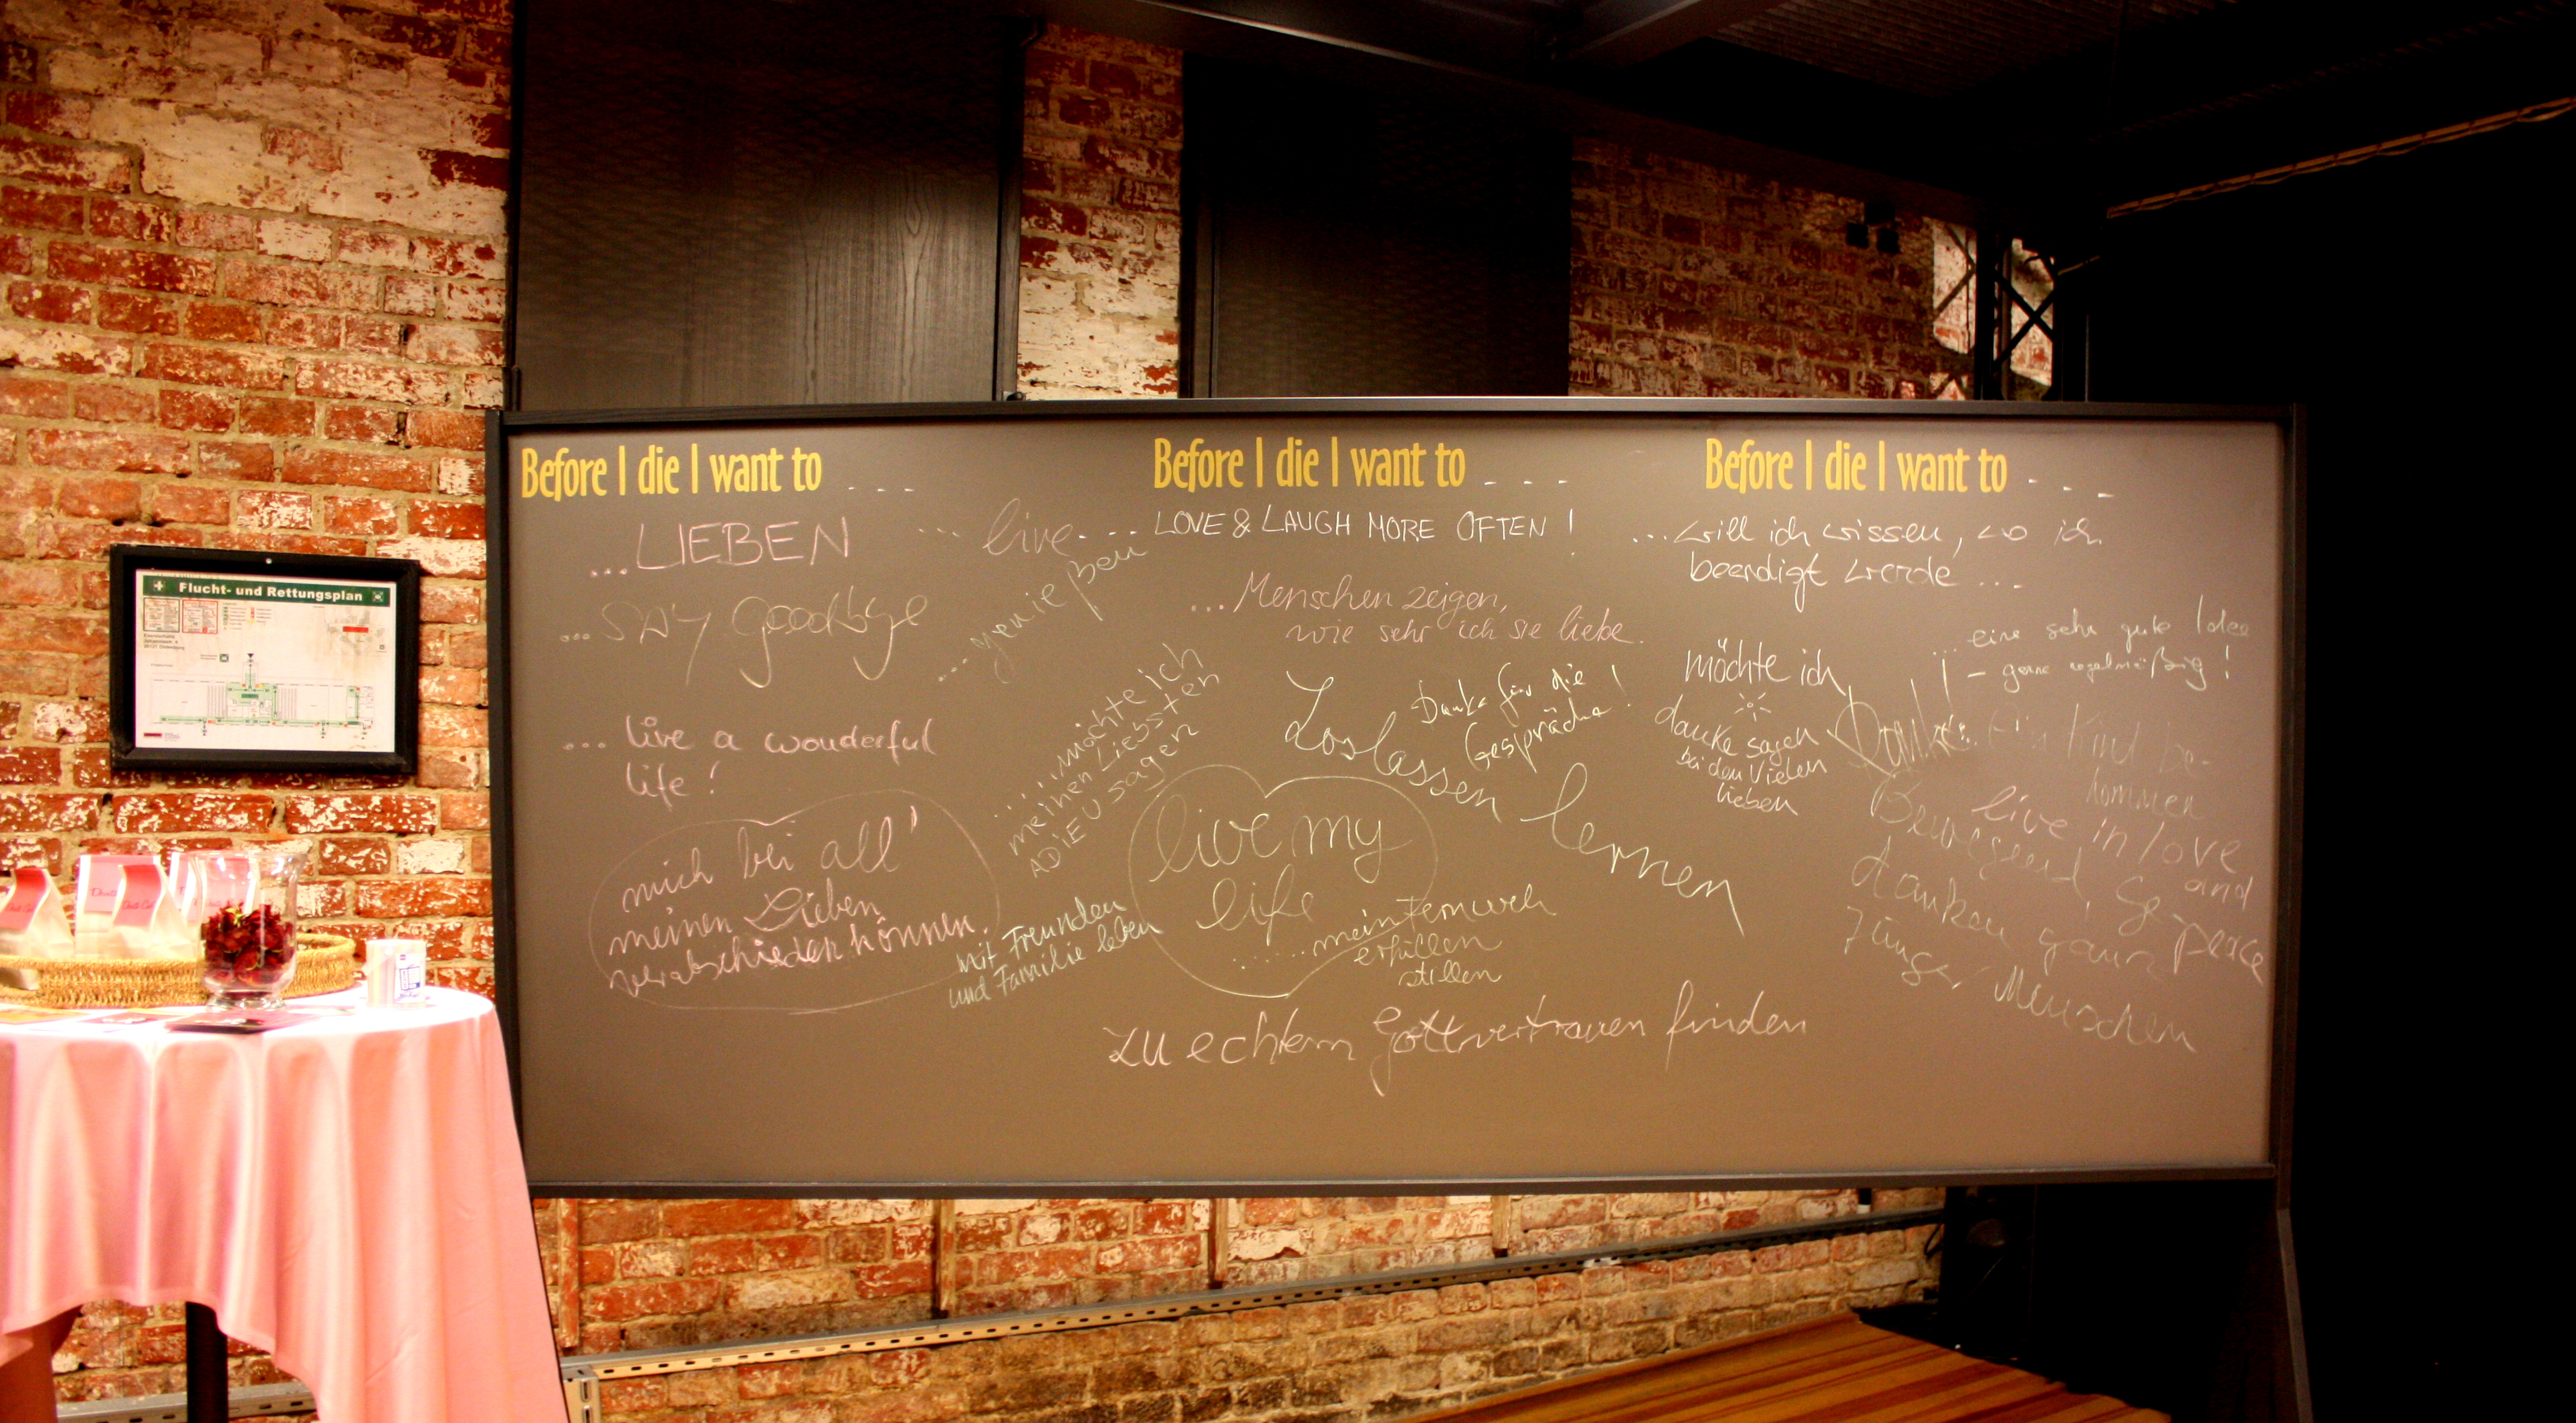 Before I die I want to ...
...LIEBEN
... live...
...say goodbye
...genießen
... live a wonderful
life!
mich bei all'
meinen Lieben
verabschieden können.
.....möchte ich
meinen Liebsten
ADIEU sagen
mit Freunden
und Familie leben
Before I die I want to ...
LOVE & LAUGH MORE OFTEN!
...Menschen zeigen,
wie sehr ich sie liebe.
Danke für die
Gespräche!
Loslassen lernen
live my
life
......mein Fernweh
erfüllen
stillen
zu echtem Gottvertrauen finden
Before I die I want to ...
...will ich wissen, wo ich
beerdigt werde...
möchte ich
danke sagen
bei den Vielen
lieben
... eine sehr gute Idee
- gerne regelmäßig!
Danke
Ein Kind be-
kommen
live in love
and
peace
Bewegend,
danken ganz
junger Menschen
Flucht- und Rettungsplan